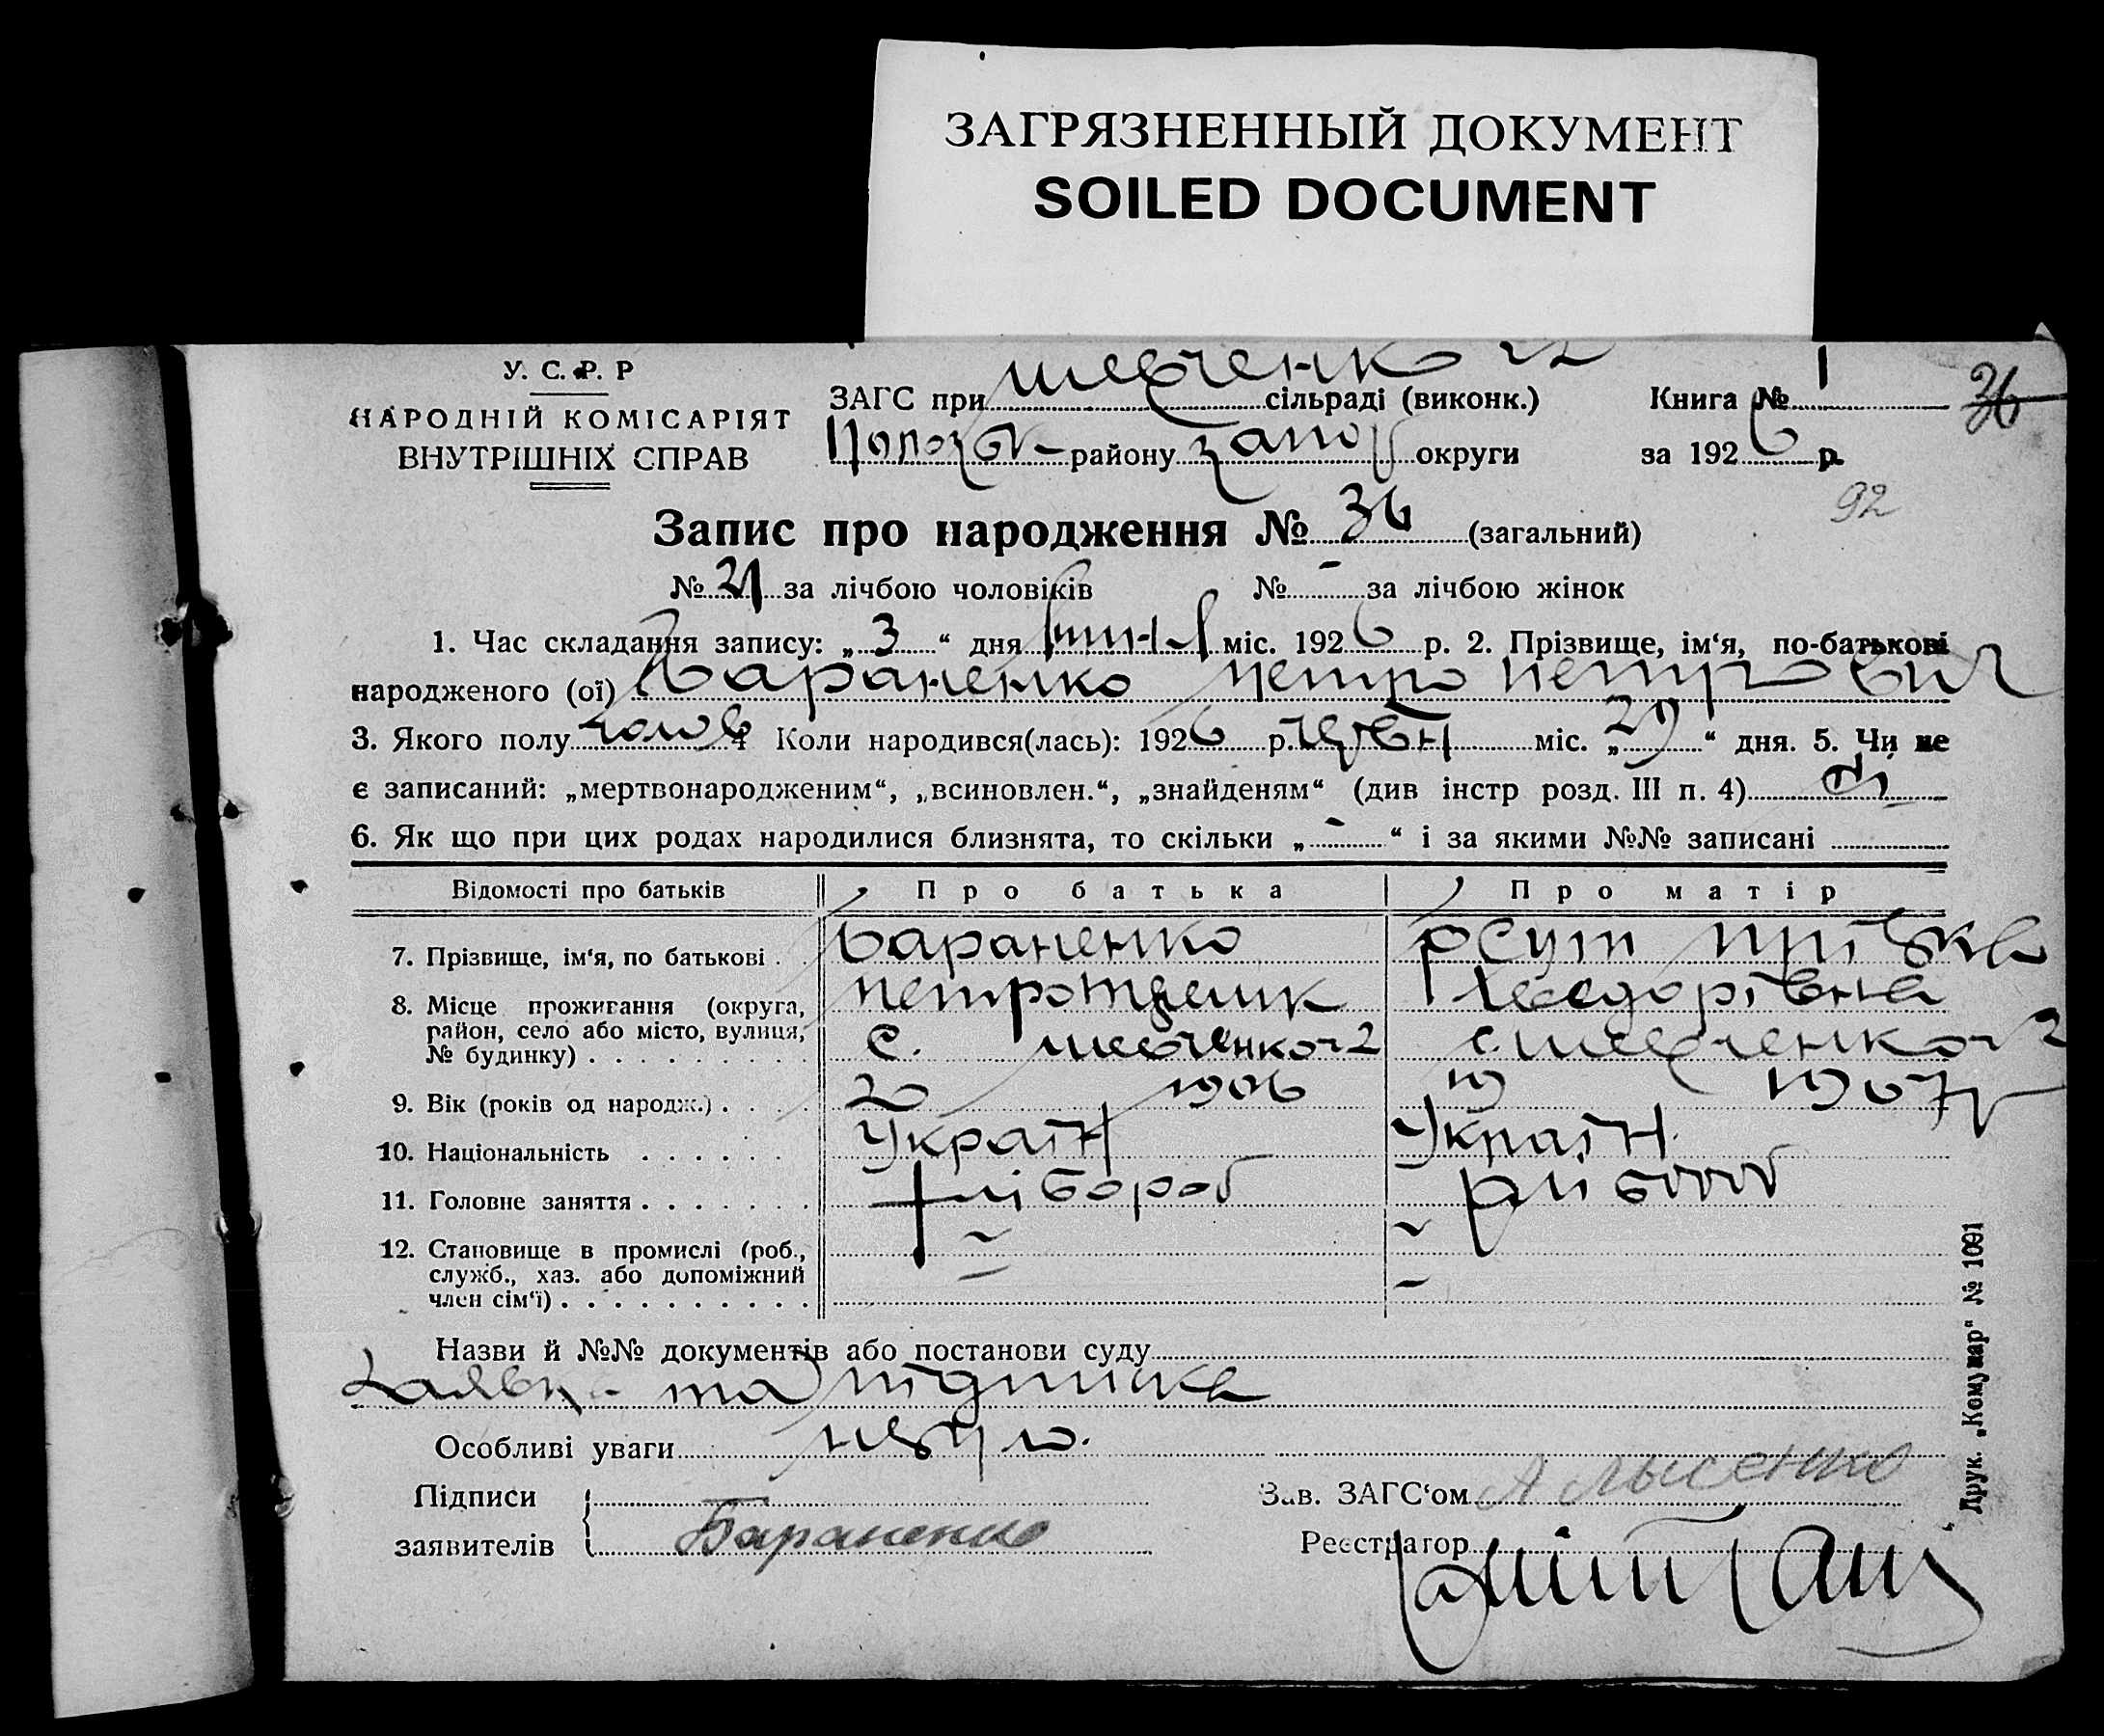 ЗАГРЯЗНЕННЫЙ ДОКУМЕНТ
SOILED DOCUMENT
У. С. Р. Р
НАРОДНІЙ КОМІСАРІЯТ
ВНУТРІШНІХ СПРАВ
ЗАГС при Шевченко №2 сільраді (виконк.)
Книга № 1
36
району Запор округи
за 1926 р.
92
Запис про народження № 36 (загальний)
№ 21 за лічбою чоловіків № - за лічбою жінок
1. Час складання запису: „ 3 “ дня міс. 1926 р. 2. Прізвище, ім‘я, по-батькові
народженого (ої) Бараненко Петро Петрович
3. Якого полу чолов 4 Коли народився(лась): 1926 р. червн міс. „ 29 “ дня. 5. Чи не
є записаний: „мертвонародженим“, „всиновлен.“, „знайденям“ (див інстр розд. III п. 4) ні
6. Як що при цих родах народилися близнята, то скільки „ - “ і за якими №№ записані
Відомості про батьків Про батька Про матір
7. Прізвище, ім‘я, по батькові Бараненко
8. Місце проживання (округа, Хведорівна
район, село або місто, вулиця,
№ будинку) с. Шевченко №2 с. Шевченко №2
9. Вік (років од народж.) 20 1906 19 1907
10. Національність Україн Україн.
11. Головне заняття хлібороб хлібороб
12. Становище в промислі (роб., - -
служб., хаз. або допоміжний - -
член сім‘ї)
Назви й №№ документів або постанови суду
Заявка та підписка
Особливі уваги
Підписи
заявителів Бараненко
Зав. ЗАГС‘ом А Лысенко
Реєстратор
Друк. „Комунар“ № 1091